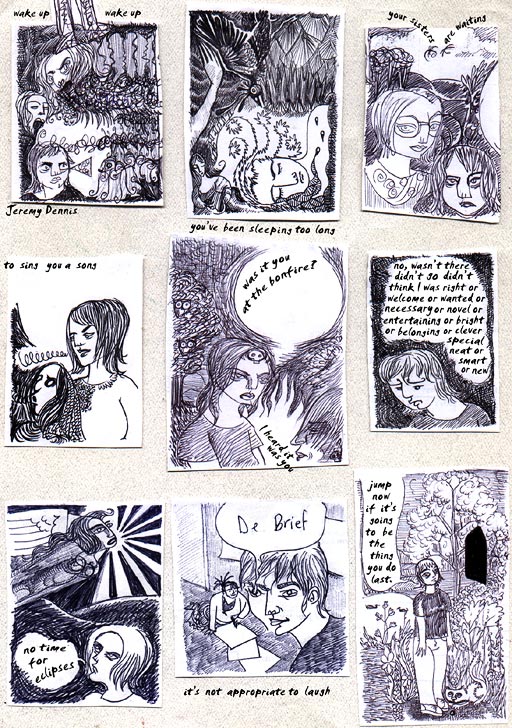 wake up wake up
Jeremy Dennis
you've been sleeping too long
your sisters are waiting
to sing you a song
was it you
at the bonfire?
I heard it
was you
no, wasn't there
didn't go didn't
think I was right or
welcome or wanted or
necessary or novel or
entertaining or bright
or belonging or clever
special
neat or
smart
or new
no time
for
eclipses
De Brief
it's not appropriate to laugh
jump
now
if it's
going
to be
the
thing
you do
last.